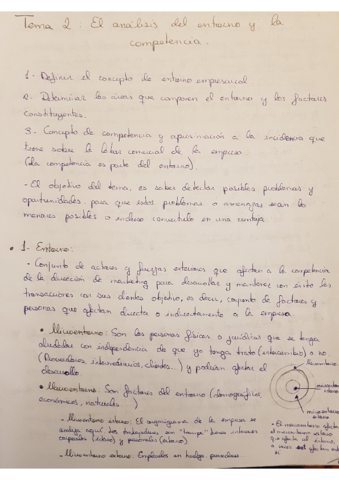 Tema 2. El análisis del entorno y la
competencia.
1- Definir el concepto de entorno empresarial
2. Determinar las áreas que componen el entorno y los factores
constituyentes.
3. Concepto de competencia y aproximación a la incidencia que
tiene sobre la labor comercial de la empresa.
(La competencia es parte del entorno)
- El objetivo del tema, es saber detectar posibles problemas y
oportunidades. para que estos problemas o amenazas sean lo
menores posibles o incluso convertirlo en una ventaja.
1- Entorno:
- Conjunto de actores y fuerzas exteriores que afectan a la competencia
de la dirección de marketing para desarrollar y mantener con éxito las
transacciones con sus clientes objetivo, es decir, conjunto de factores y
personas que afectan directa o indirectamente a la empresa
Microentorno: Son las personas físicas o jurídicas que se tenga
con independencia de que yo tenga trato (intercambio) o no
(Proveedores, intermediarios, clientes...) y podrían afectar el
desarrollo
Macroentorno: Son factores del entorno (demográficos,
económicos, naturales...)
- Microentorno interno: El organigrama de la empresa se
Los trabajadores son intereses
y personales
- Microentorno externo: Empleados en huelga,
El macroentorno afecta